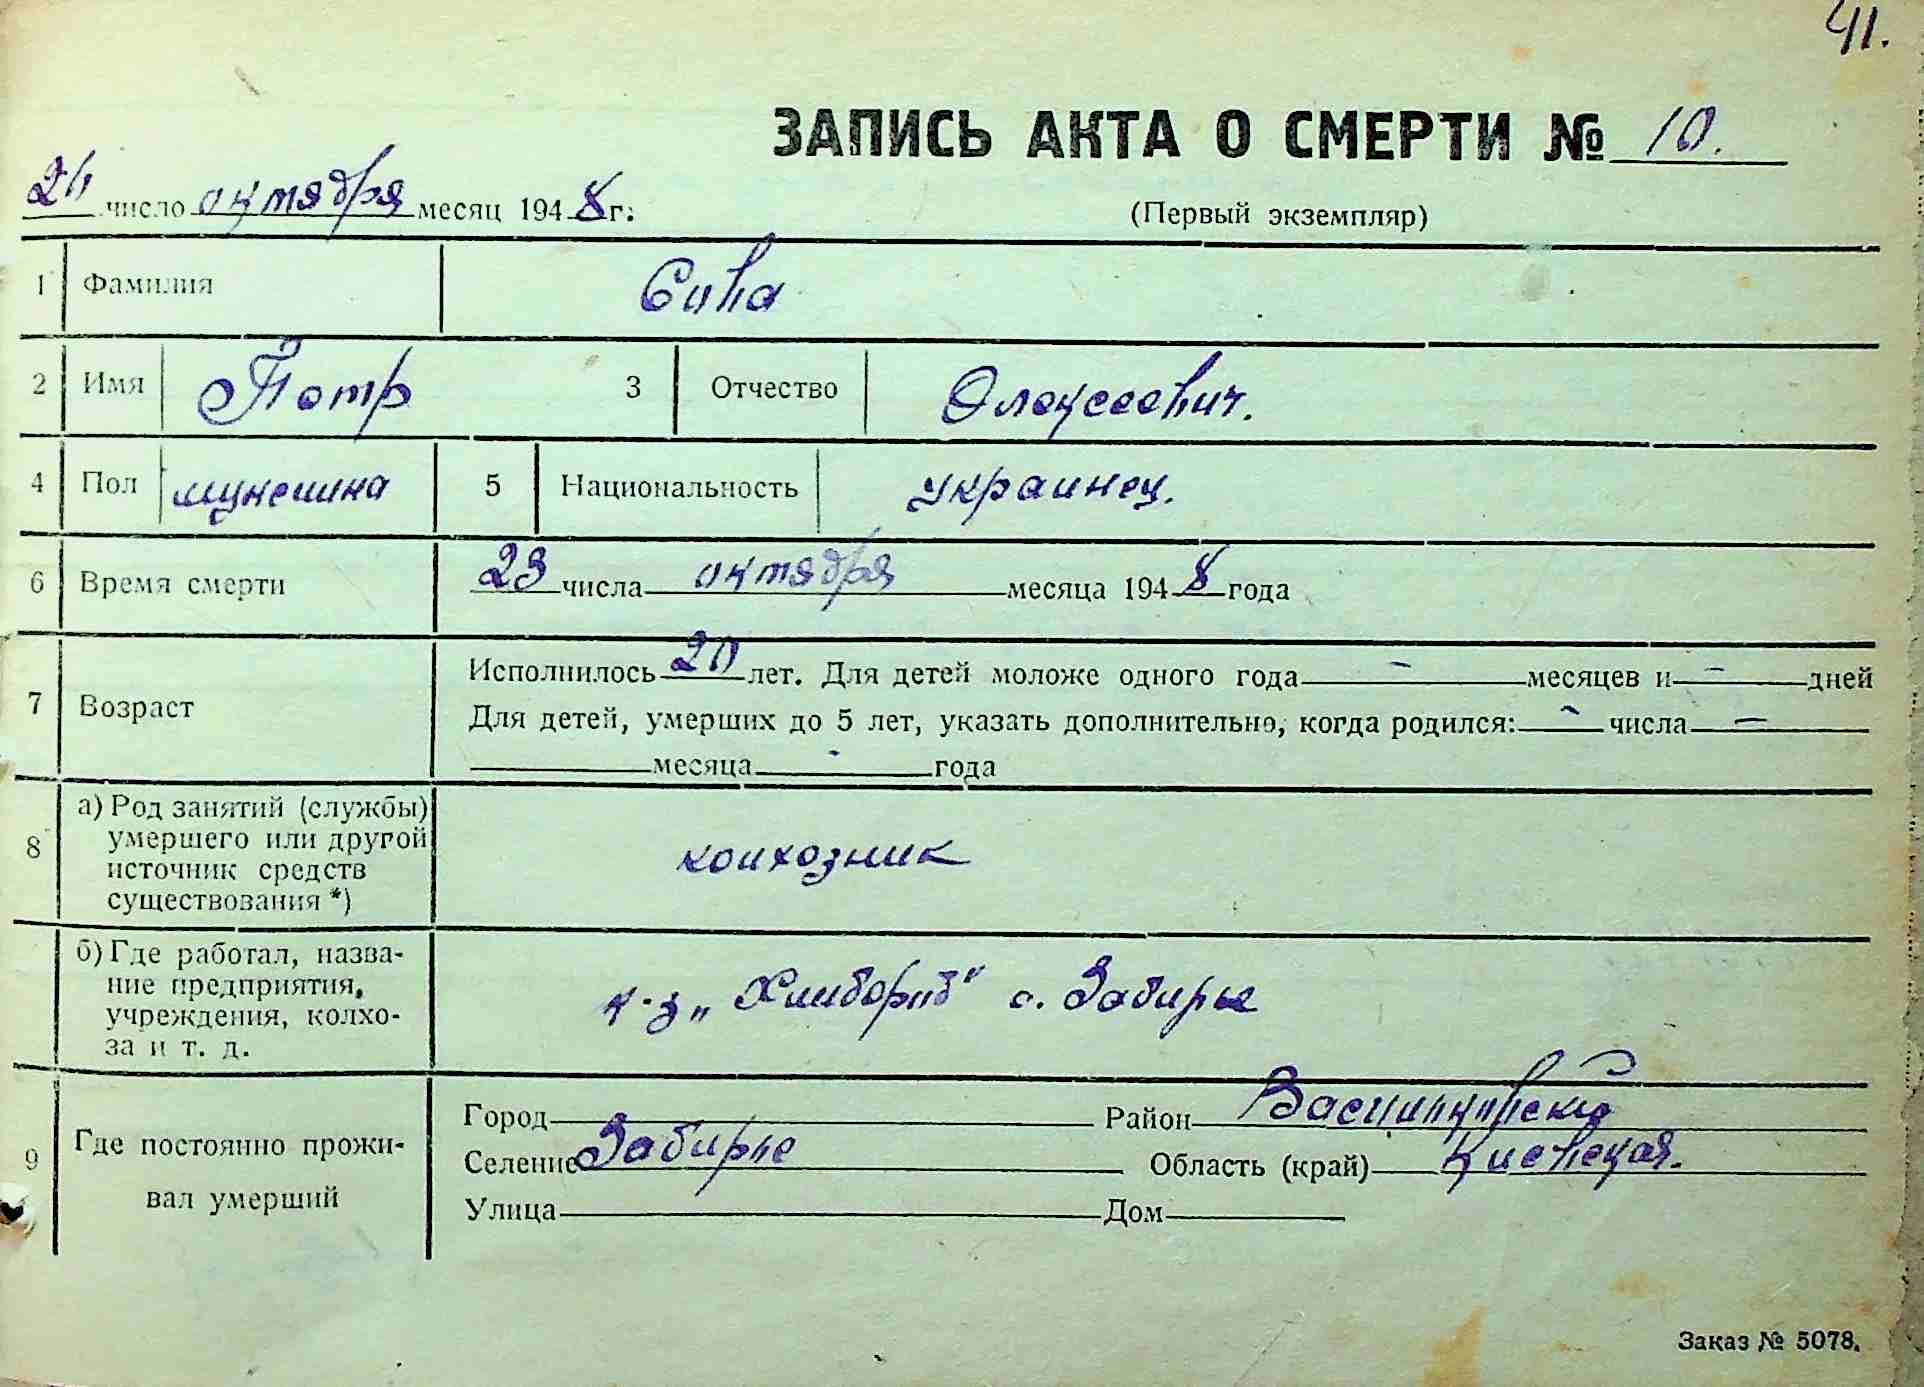 41.
ЗАПИСЬ АКТА О СМЕРТИ № 10.
24 число октября месяц 1948 г.
(Первый экземпляр)
1 Фамилия Сива
2 Имя Петр 3 Отчество Олексеевич.
4 Пол мужчина 5 Национальность украинец.
6 Время смерти 23 числа октября месяца 1948 года
7 Возраст
Исполнилось 20 лет. Для детей моложе одного года — месяцев и — дней
Для детей, умерших до 5 лет, указать дополнительно, когда родился: — числа —
месяца - года
8 а) Род занятий (службы)
умершего или другой
источник средств
существования *)
колхозник
б) Где работал, назва-
ние предприятия,
учреждения, колхо-
за и т. д.
к-з „Хлибороб" с. Забирье
9 Где постоянно прожи-
вал умерший
Город Район Васильковский
Селение Забирье Область (край) Киевская.
Улица Дом
Заказ № 5078.